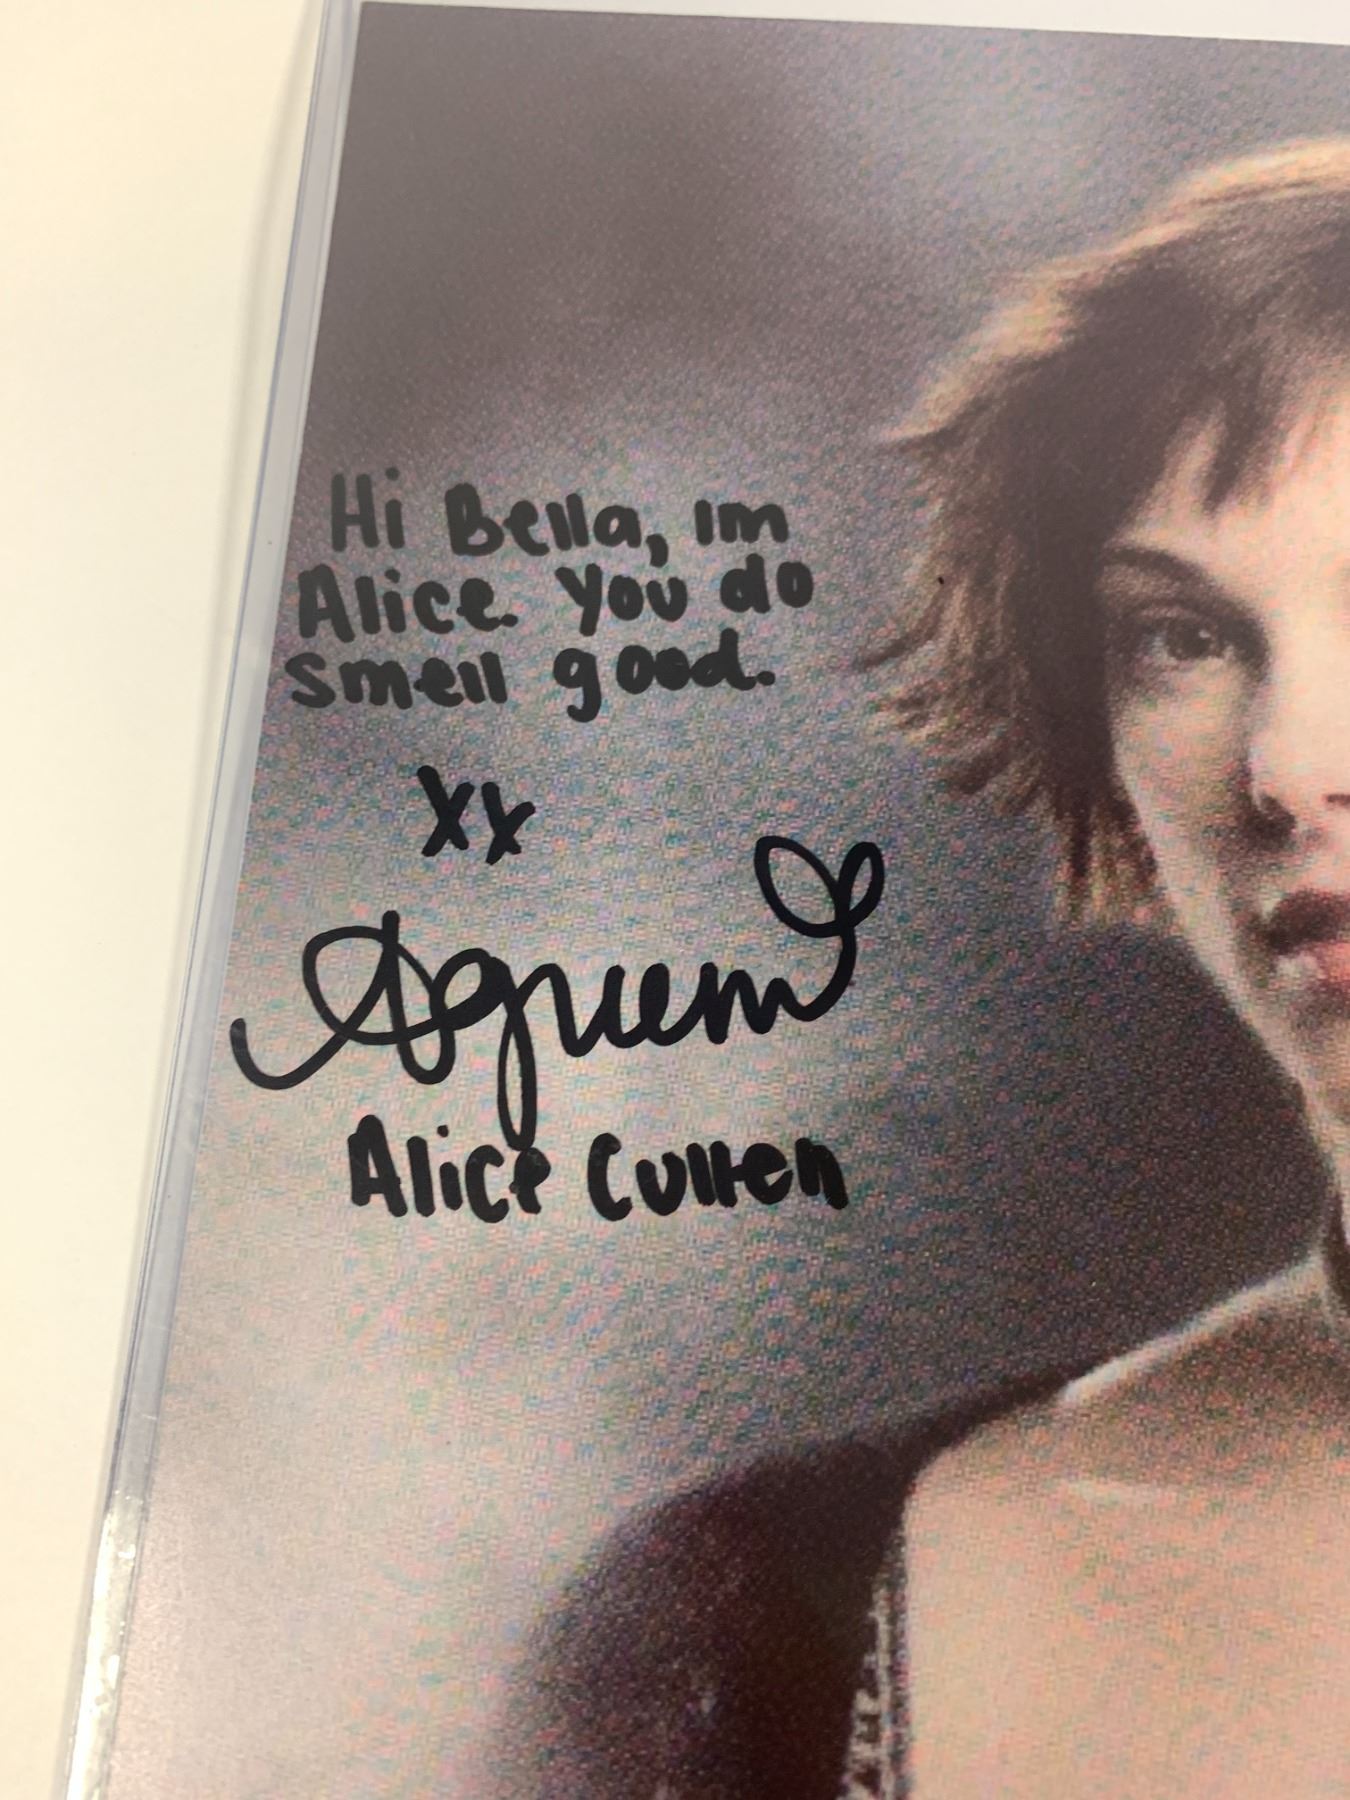 Hi Bella, Im
Alice. You do
smell good.
xx
Alice Cullen